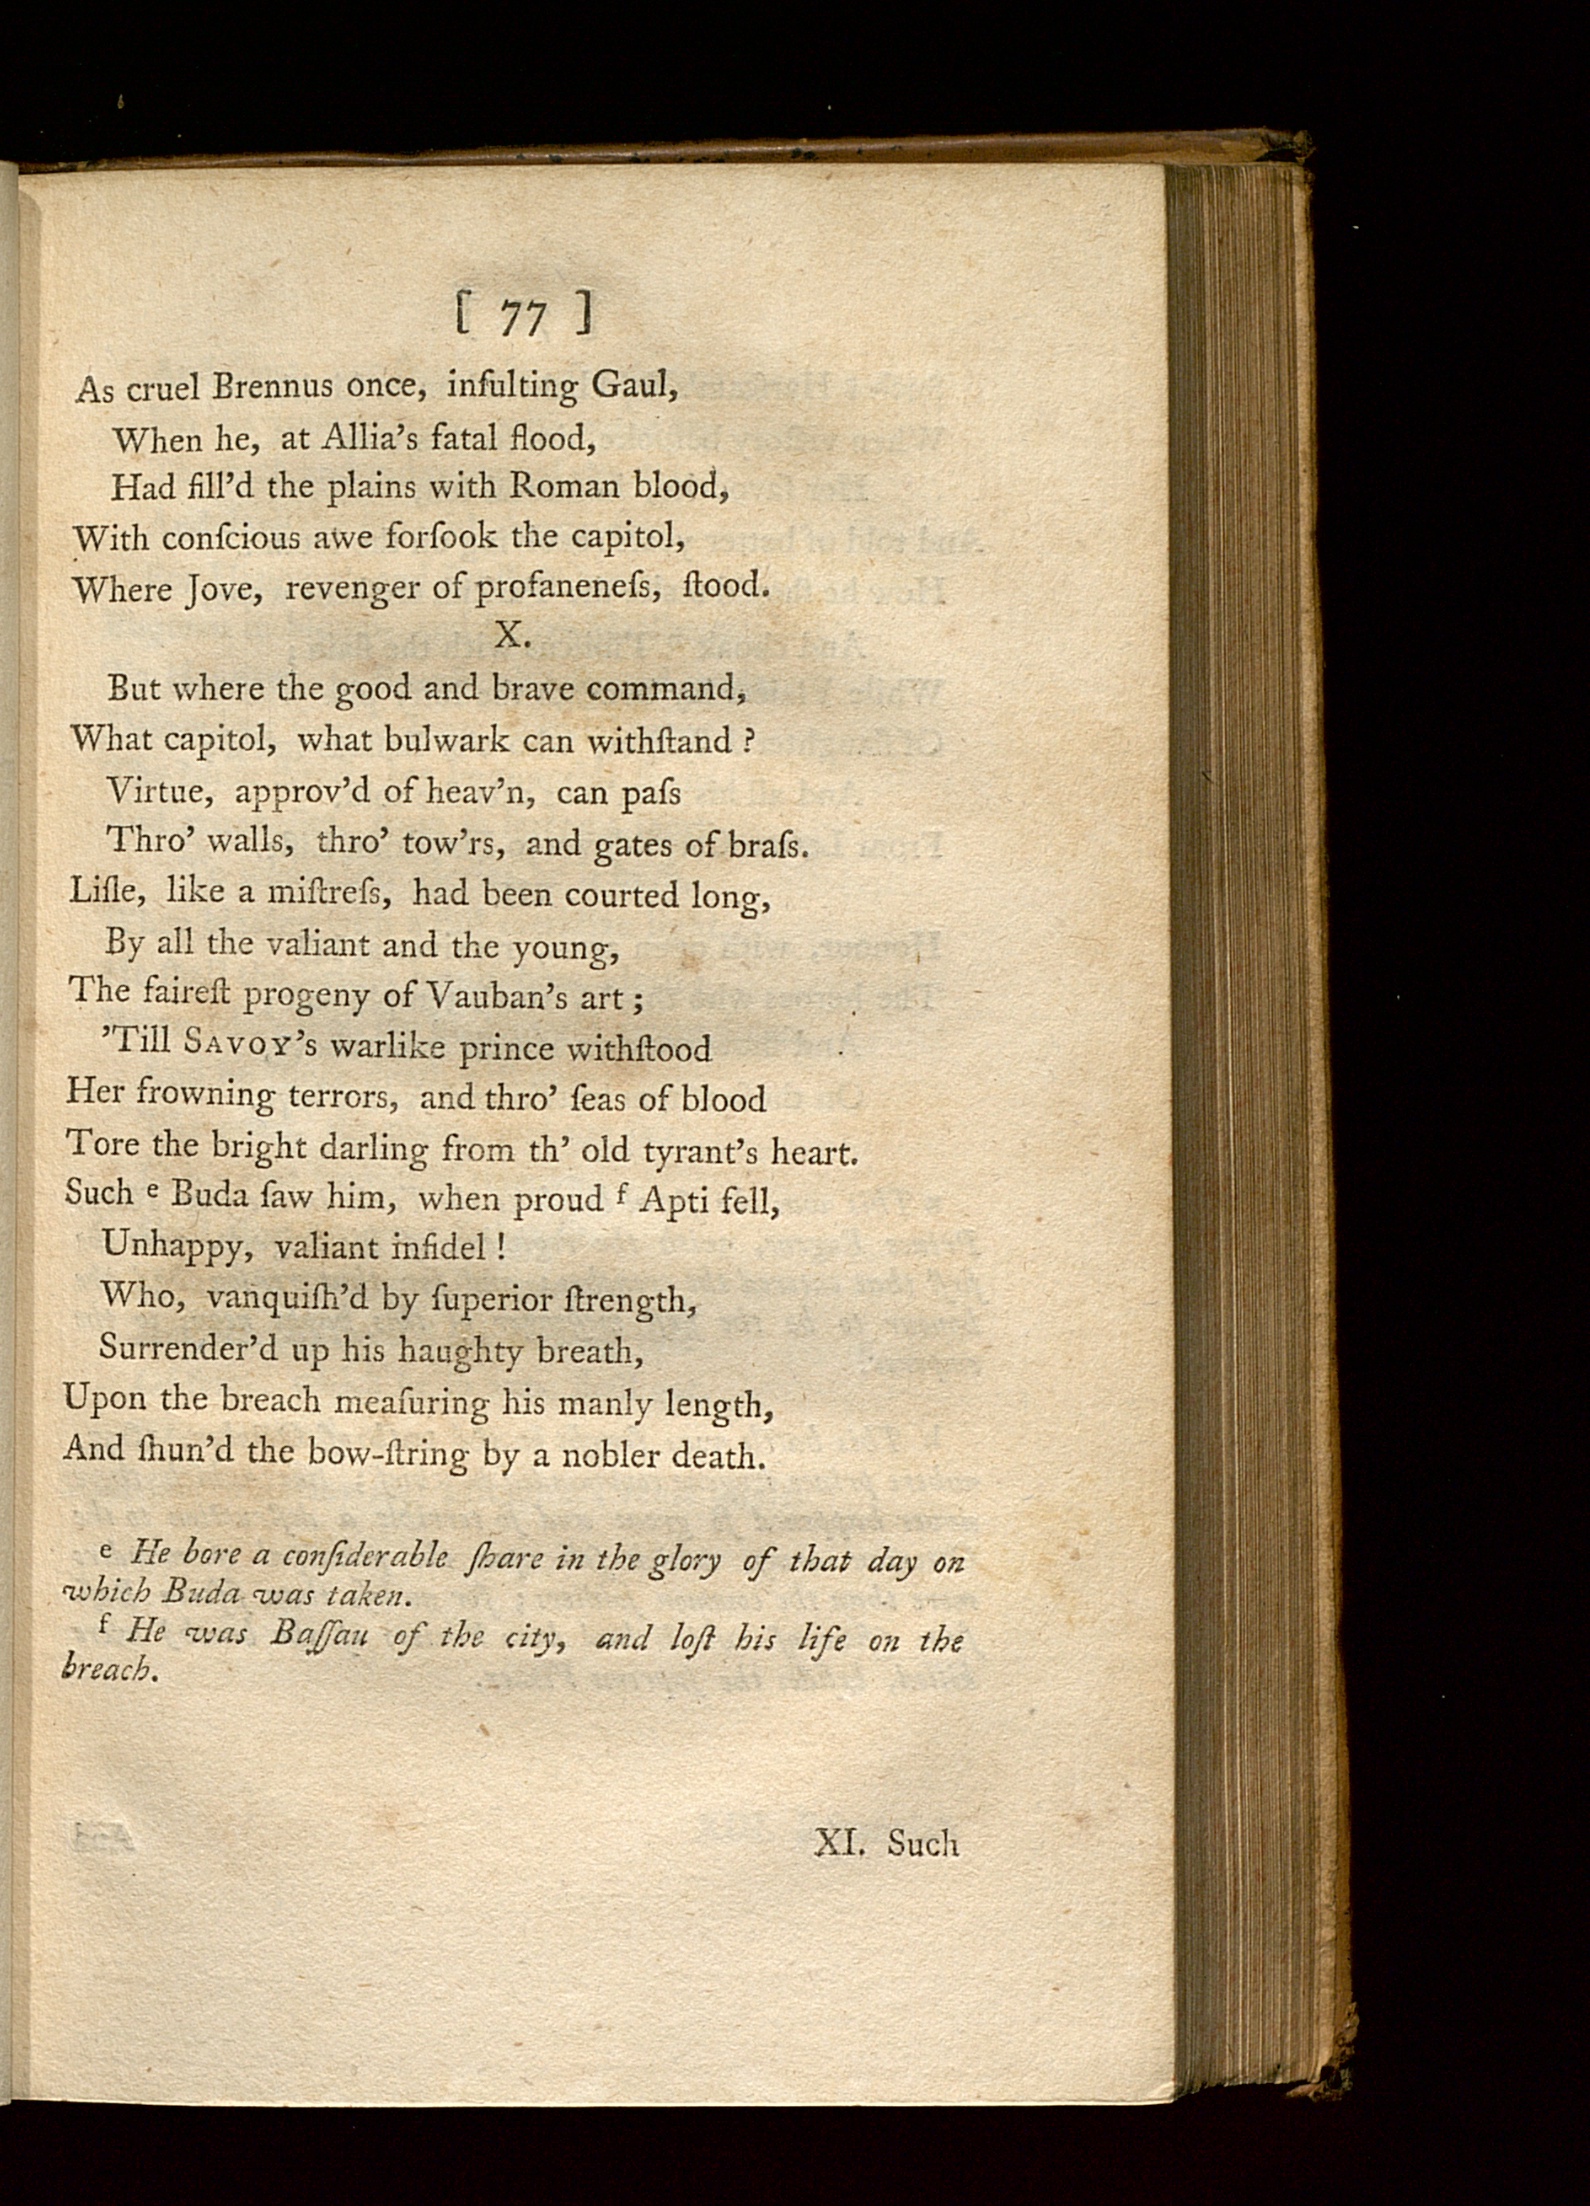 [ 77 ]
As cruel Brennus once, inſulting Gaul,
When he, at Allia's fatal flood,
Had fill'd the plains with Roman blood,
With conſcious awe forſook the capitol,
Where Jove, revenger of profaneneſs, ſtood.
X.
But where the good and brave command,
What capitol, what bulwark can withſtand ?
Virtue, approv'd of heav'n, can paſs
Thro' walls, thro' tow'rs, and gates of braſs.
Liſle, like a miſtreſs, had been courted long,
By all the valiant and the young,
The faireſt progeny of Vauban's art ;
'Till SAVOY's warlike prince withſtood
Her frowning terrors, and thro' ſeas of blood
Tore the bright darling from th' old tyrant's heart.
Such e Buda ſaw him, when proud f Apti fell,
Unhappy, valiant infidel !
Who, vanquiſh'd by ſuperior ſtrength,
Surrender'd up his haughty breath,
Upon the breach meaſuring his manly length,
And ſhun'd the bow-ſtring by a nobler death.
e He bore a conſiderable ſhare in the glory of that day on
which Buda was taken.
f He was Baſſau of the city, and loſt his life on the
breach.
XI. Such